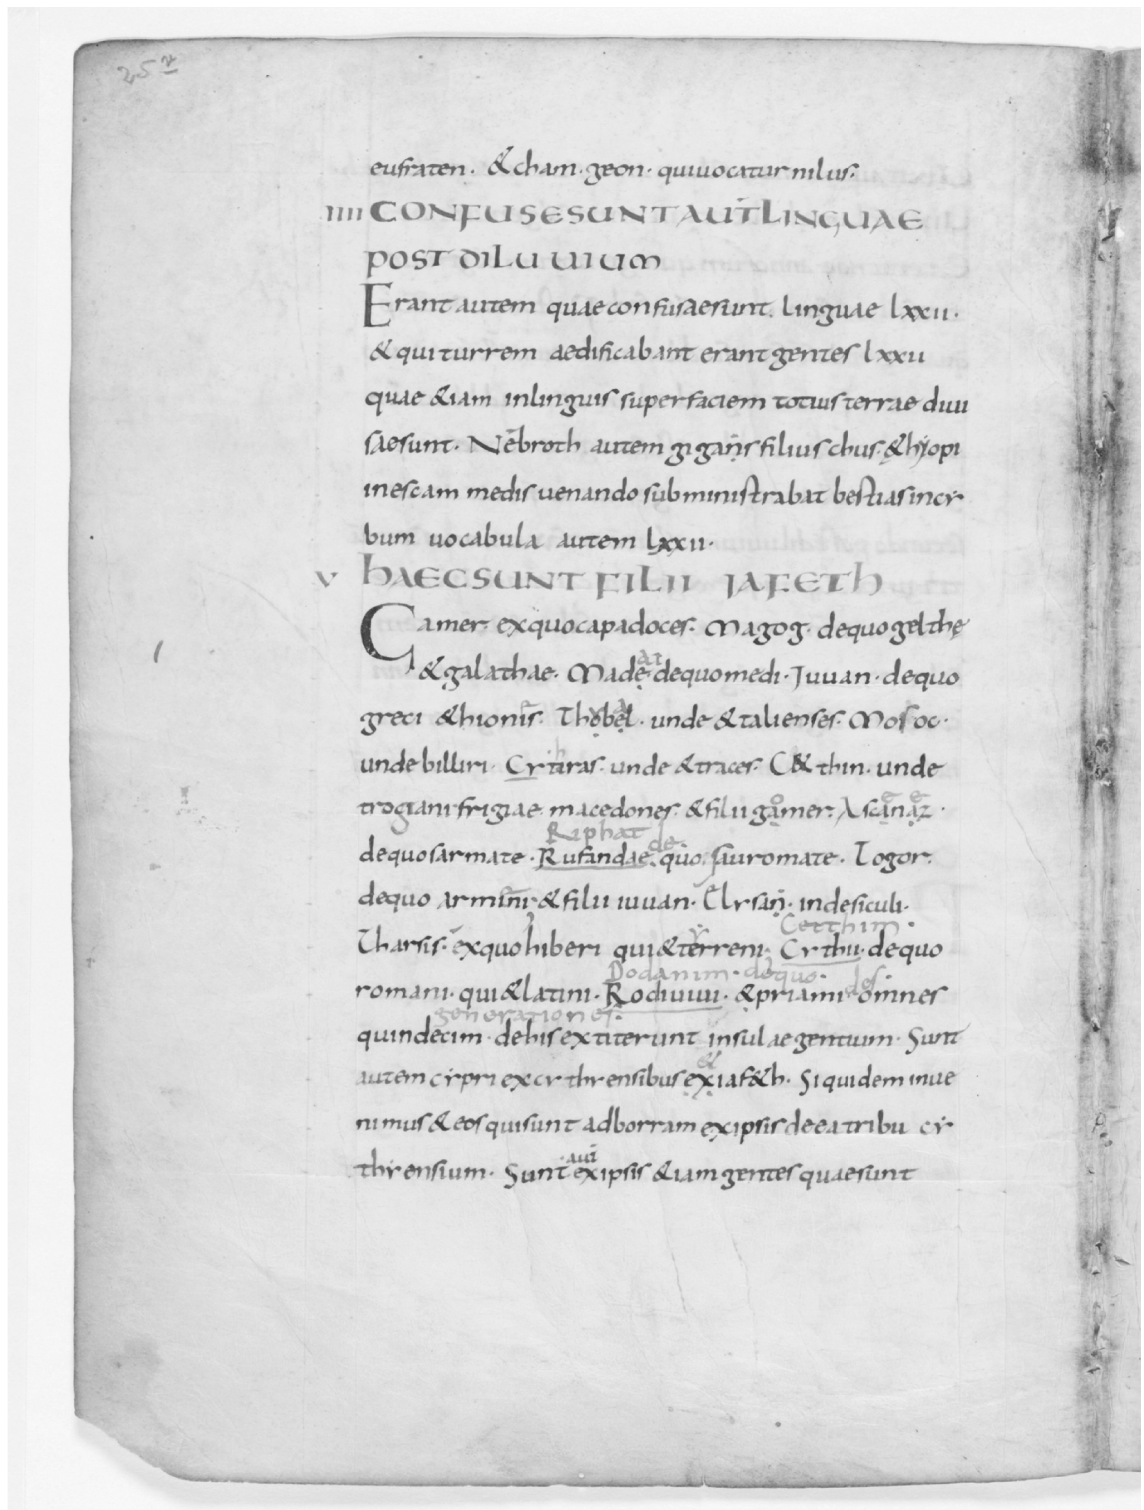 25 v
eufraten · & cham · geon · qui uocatur nilus ·
IIII CONFUSE SUNT AUT̄ LINGUAE
POST DILUUIUM
Erant autem quae confusae sunt linguae lxxii ·
& qui turrem aedificabant erant gentes lxxii
quae &iam in linguis super faciem totius terrae diui
sae sunt · Nebroth autem gigans filius chus &hyopi
in escam medis uenando subministrabat bestias in cy
bum uocabula autem lxxii ·
V HAEC SUNT FILII IAFETH
Gamer · ex quo capadoces · Magog · de quo gelthę
ai
& galathae · Madę · de quo medi · Iuuan · de quo
a
greci & hionis · Thobel · unde & talienses · Mosoc ·
h
unde billiri · Cytiras · unde & traces · C& thin · unde
o e e
trogiani frigiae macedones · & filii gamer · Ascanaz ·
Riphat de
de quo sarmate · Rufandae · quo sauromate · Togor ·
e
de quo armini & filii iuuan · Elysan · inde siculi ·
Cetthim ·
Tharsis · ex quo hiberi qui & terreni · Cythii · de quo
Dodanim · de quo · des ·
romani · qui & latini · Rodiuiui · & priami omnes
generationes ·
quindecim · de his extiterunt insulae gentium · Sunt
&
autem cypri ex cythrensibus ex iaf&h · Siquidem inue
nimus & eos qui sunt ad borram ex ipsis de ea tribu cy
aut̄
thrensium · Sunt ex ipsis &iam gentes quae sunt